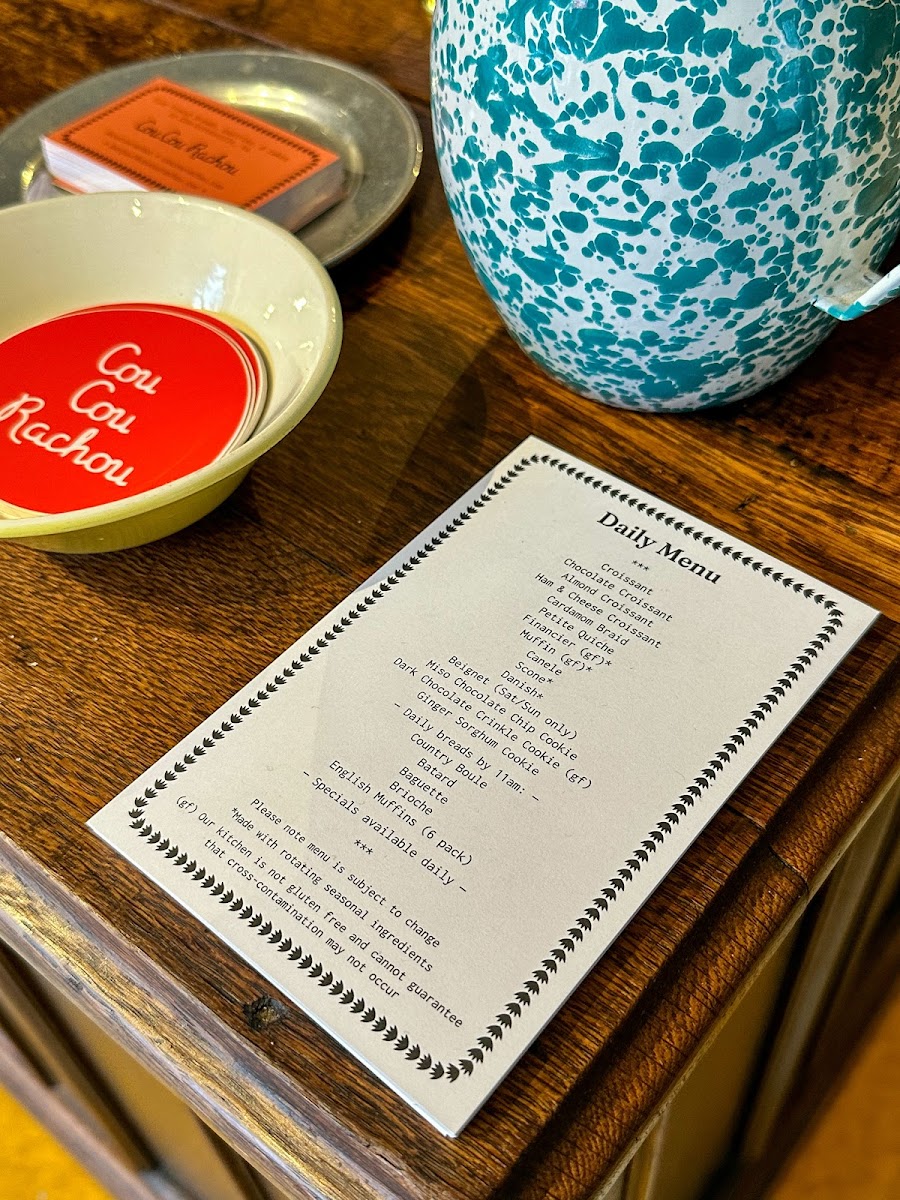 Cou Cou Rachou
Cou
Cou
Rachou
Daily Menu
***
Croissant
Chocolate Croissant
Almond Croissant
Ham & Cheese Croissant
Cardamom Braid
Petite Quiche
Financier (gf)*
Muffin (gf)*
Canele
Scone*
Danish*
Beignet (Sat/Sun only)
Miso Chocolate Chip Cookie
Dark Chocolate Crinkle Cookie (gf)
Ginger Sorghum Cookie
– Daily breads by 11am: –
Country Boule
Batard
Baguette
Brioche
English Muffins (6 pack)
– Specials available daily –
***
Please note menu is subject to change
*Made with rotating seasonal ingredients
(gf) Our kitchen is not gluten free and cannot guarantee
that cross-contamination may not occur